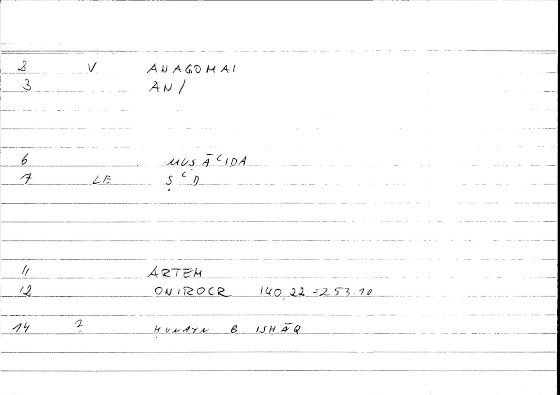 2 V ANAGOMAI
3 AN/
6 MUṢĀʿIDA
7 LE ṢʿD
11 ARTEM
12 ONIROCR 140,22=253.10
14 2 ḤUNAYN B ISḤĀQ